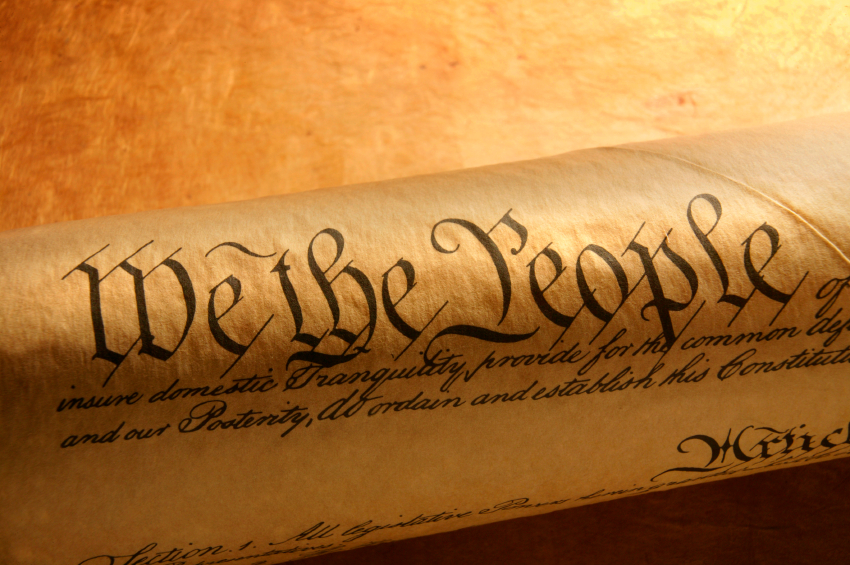 We the People of
insure domestic Tranquility, provide for the common
and our Posterity, do ordain and establish this
Section. 1. All legislative